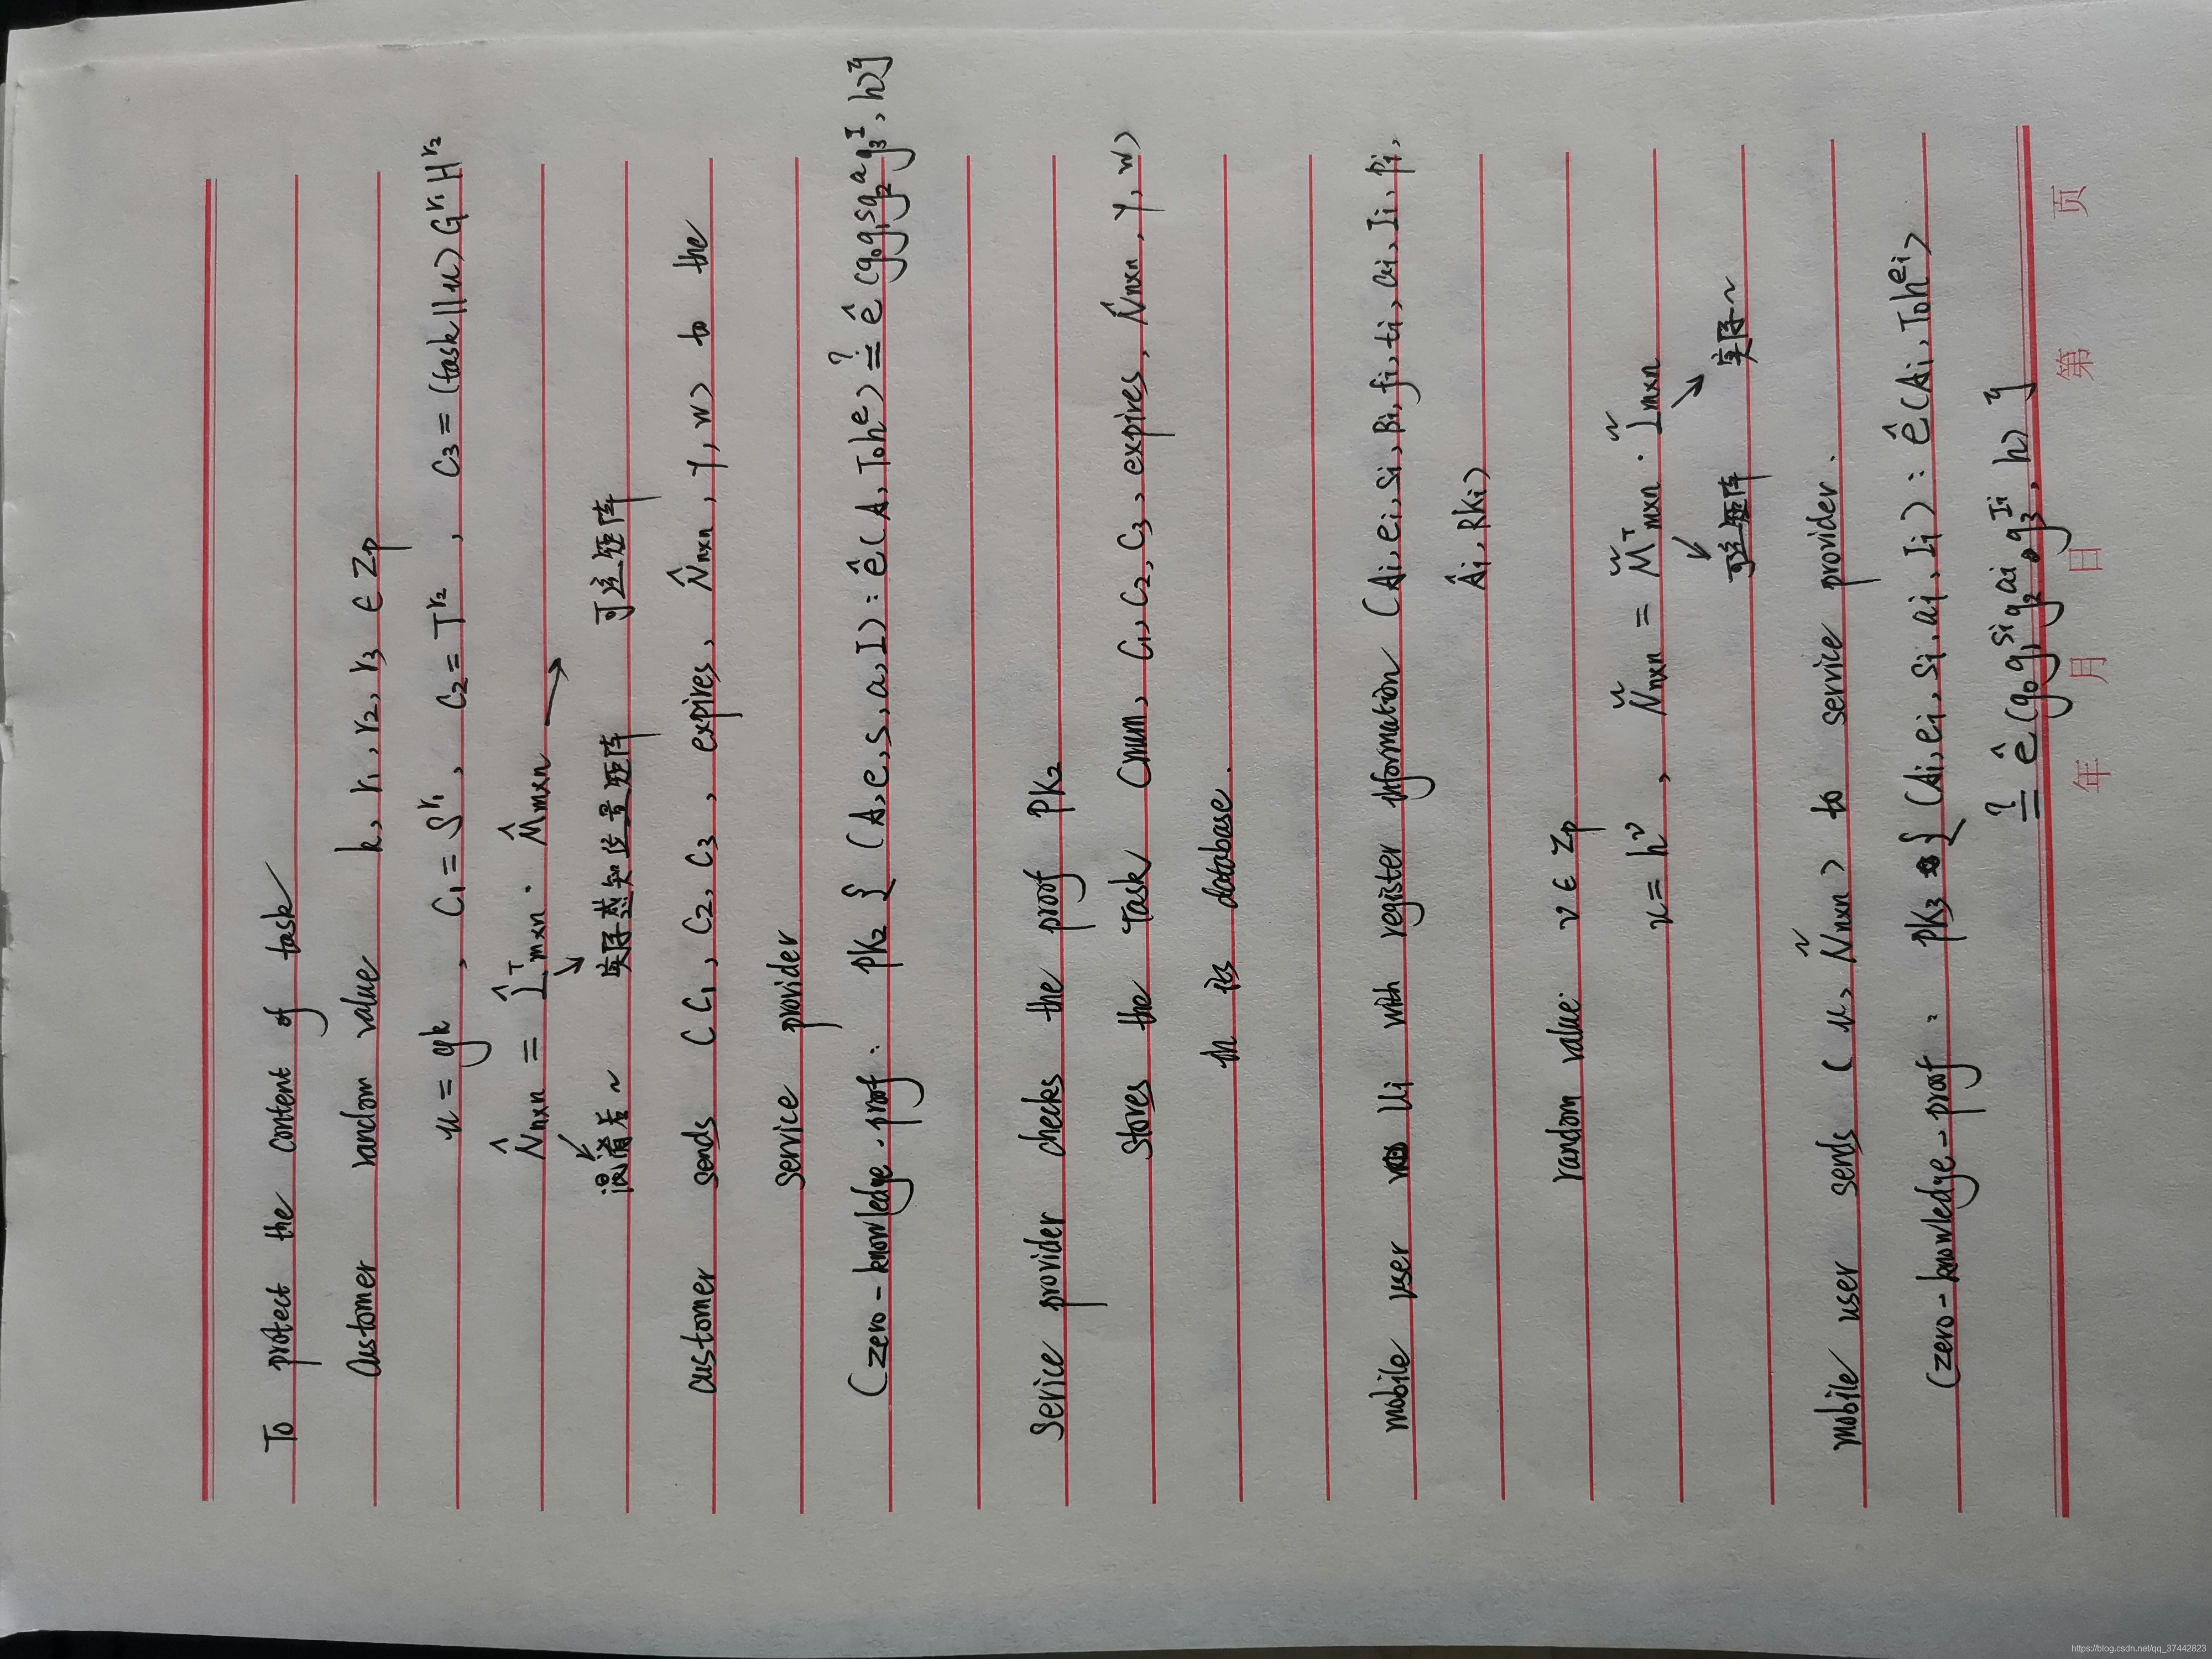 To protect the content of task
Customer random value k, r₁, r₂, r₃ ∈ Zp
u = gᵏ, C₁ = S^r₁, C₂ = T^r₂, C₃ = (task||u) G^r₁ H^r₂
N̂nxn = L̂ᵀmxn · M̂mxn
混淆后~ 实际感知位置矩阵 可逆矩阵
customer sends (C₁, C₂, C₃, expires, N̂nxn, γ, w) to the
service provider
(zero-knowledge-proof: PK₂ { (A, e, s, a, I) : ê(A, T₀hᵉ) ≟ ê(g₀g₁ˢg₂ᵃg₃ᴵ, h) }
Service provider checks the proof PK₂
stores the Task (num, C₁, C₂, C₃, expires, N̂nxn, γ, w)
in its database.
mobile user Ui with register information (Ai, ei, si, Bi, fi, ti, ai, Ii, Pi,
Âi, RKi)
random value: v ∈ Zp
u = hᵛ, Ñnxn = M̃ᵀmxn · L̃mxn
可逆矩阵 实际~
mobile user sends (u, Ñnxn) to service provider.
(zero-knowledge-proof: PK₃ { (Ai, ei, si, ai, Ii) : ê(Ai, T₀h^ei)
≟ ê(g₀g₁^si g₂^ai g₃^Ii, h) }
年 月 日 第 页
https://blog.csdn.net/qq_37442823